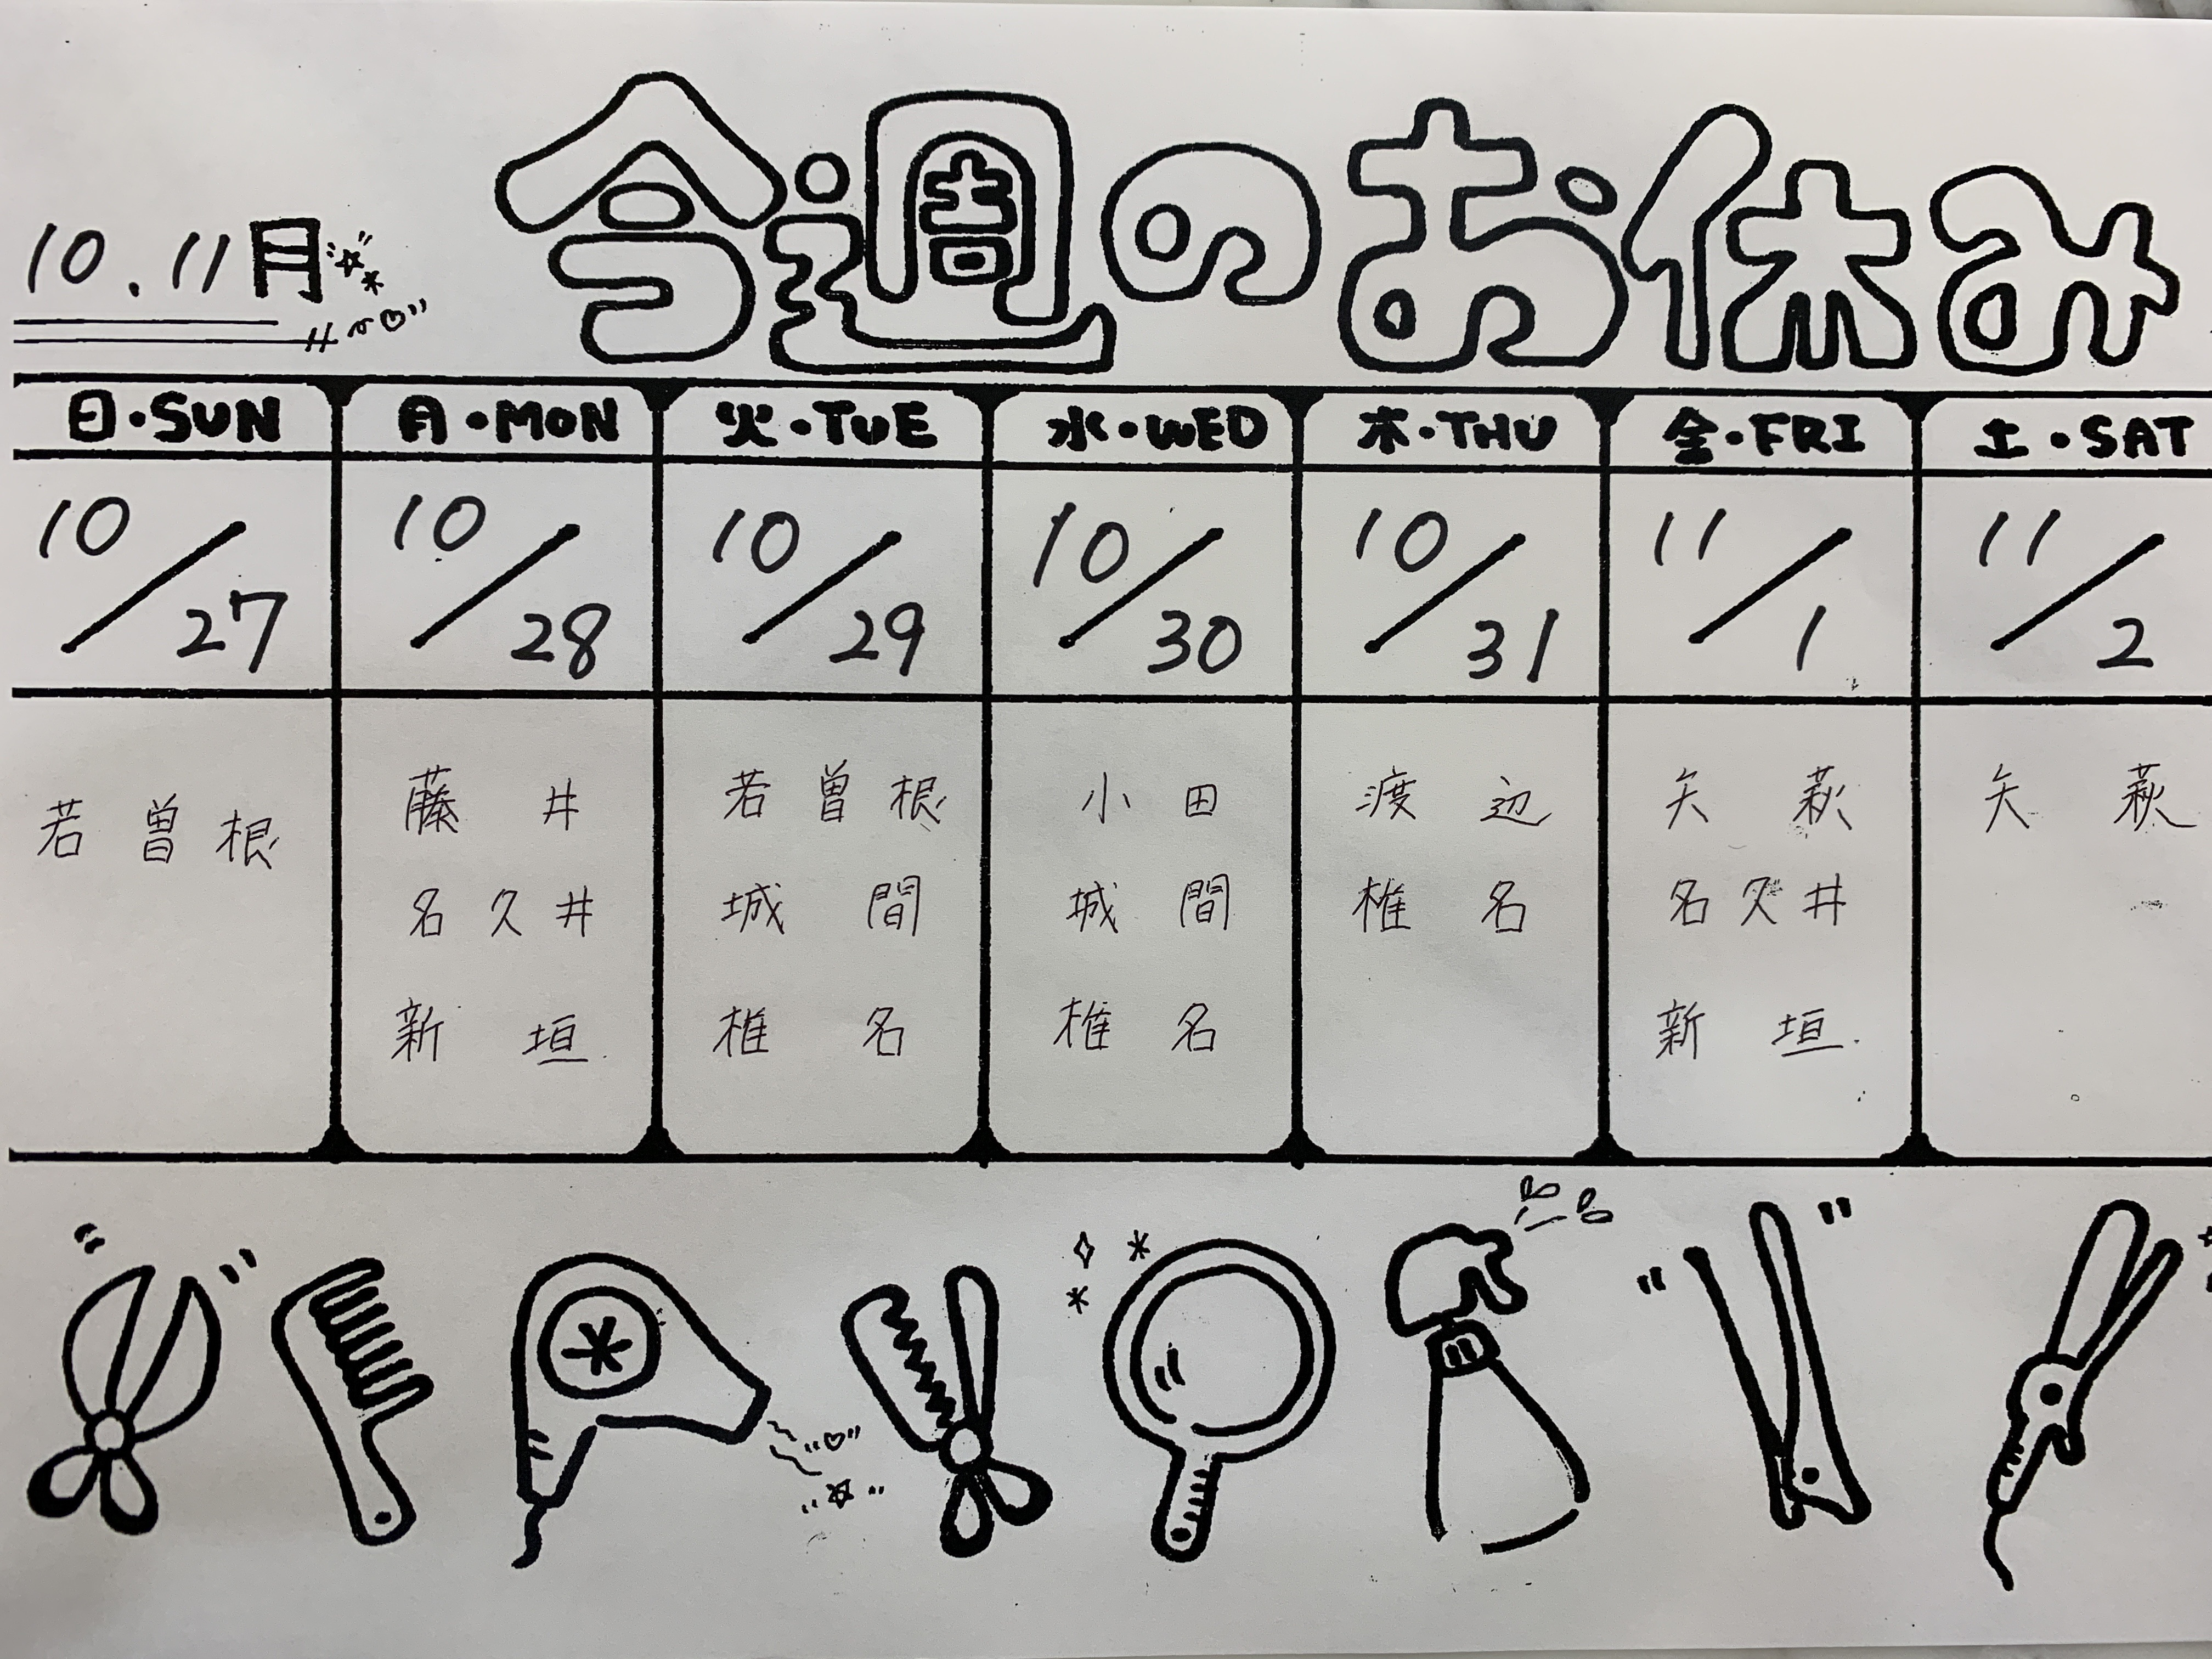 今週のお休み
10.11月
日・SUN 月・MON 火・TUE 水・WED 木・THU 金・FRI 土・SAT
10/27 10/28 10/29 10/30 10/31 11/1 11/2
若曽根 藤井 若曽根 小田 渡辺 矢萩 矢萩
名久井 城間 城間 椎名 名久井
新垣 椎名 椎名 新垣